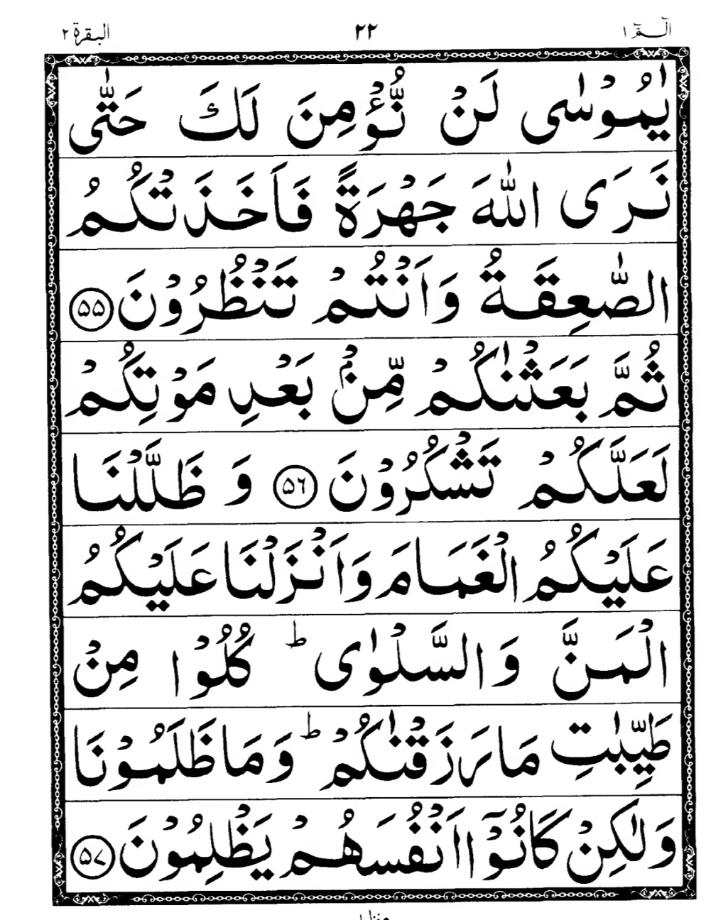 الٓـمّٓ ١ ٢٢ البقرة ٢
يٰمُوْسٰى لَنْ نُّؤْمِنَ لَكَ حَتّٰى
نَرَى اللّٰهَ جَهْرَةً فَاَخَذَتْكُمُ
الصّٰعِقَةُ وَاَنْتُمْ تَنْظُرُوْنَ ۵۵
ثُمَّ بَعَثْنٰكُمْ مِّنْۢ بَعْدِ مَوْتِكُمْ
لَعَلَّكُمْ تَشْكُرُوْنَ ۵۶ وَ ظَلَّلْنَا
عَلَيْكُمُ الْغَمَامَ وَاَنْزَلْنَا عَلَيْكُمُ
الْمَنَّ وَالسَّلْوٰى ؕ كُلُوْا مِنْ
طَيِّبٰتِ مَا رَزَقْنٰكُمْ ؕ وَمَا ظَلَمُوْنَا
وَلٰكِنْ كَانُوْۤا اَنْفُسَهُمْ يَظْلِمُوْنَ ۵۷